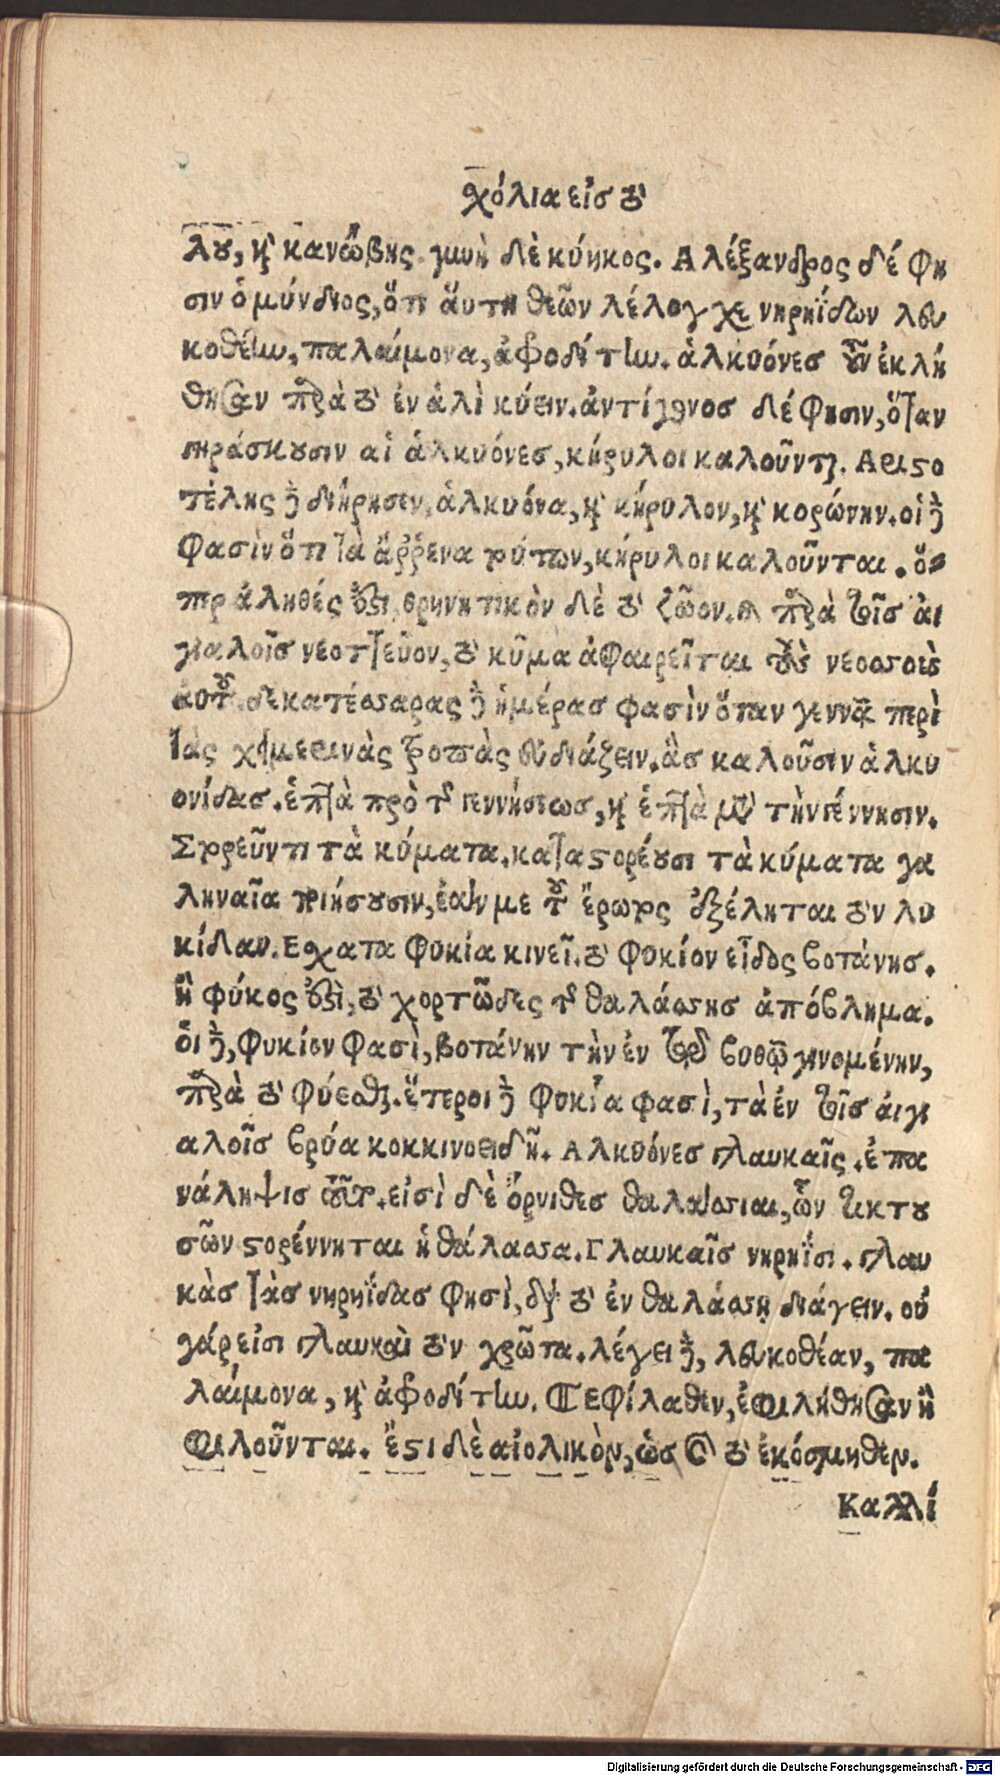 χόλια εἰσ τὸ
λου, καὶ κανώβης. γυνὴ δὲ κύηκος. Αλέξανδρος δέ φη
σιν ὁ μύνδιος, ὅτι ἅυτη θεῶν λέλογχε νηρηΐδων λευ
κοθέην, παλαίμονα, ἀφροδίτην. ἀλκυόνεσ οὖν ἐκλή
θησαν παρὰ τὸ ἐν ἁλὶ κύειν. ἀντίγονοσ δέ φησιν, ὅταν
γηράσκουσιν αἱ ἀλκυόνες, κήρυλοι καλοῦνται. Αριστο
τέλης δὲ διήρησεν, ἀλκυόνα, καὶ κήρυλον, καὶ κορώνην. οἱ δὲ
φασὶν ὅτι τὰ ἄῤῥενα τούτων, κήρυλοι καλοῦνται. ὅ-
περ ἀληθές ἐστι, θρηνητικὸν δὲ τὸ ζῶον. παρὰ τοῖσ ἀι
γιαλοῖσ νεοττεῦον, τὸ κῦμα ἀφαιρεῖται τοὺς νεοσσοὺς
ἀυτοῦ. δεκατέσσαρας δὲ ἡμέρασ φασὶν ὅταν γεννᾷ περὶ
τὰς χειμερινὰς τροπὰς εὐδιάζειν. ἃσ καλοῦσιν ἀλκυ
ονίδασ. ἑπτὰ πρὸ τῆς γεννήσεωσ, καὶ ἑπτὰ μετὰ τὴν γέννησιν.
Στορεῦντι τὰ κύματα. καταστορέουσι τὰ κύματα γα
ληναῖα ποιήσουσιν, ἐάν με τοῦ ἔρωτος ἐξέληται τὸν λυ
κίδαν. Εχατα φυκία κινεῖ. τὸ φυκίον εἶδος βοτάνησ.
ἢ φύκος ἐστὶ, τὸ χορτῶδες τῆς θαλάσσησ ἀπόβλημα.
ὁι δὲ, φυκίον φασὶ, βοτάνην τὴν ἐν τῷ βυθῷ γινομένην,
παρὰ τὸ φύεσθαι. ἕτεροι δὲ φυκία φασὶ, τὰ ἐν τοῖσ ἀιγι
αλοῖσ βρύα κοκκινοειδῆ. Αλκυόνεσ γλαυκαῖς. ἐπα
νάληψισ τοῦτο. εἰσὶ δὲ ὄρνιθεσ θαλάσσιαι, ὧν τικτου
σῶν στορέννηται ἡ θάλασσα. Γλαυκαῖσ νηρηΐσι. γλαυ
κὰσ τὰσ νηρηΐδασ φησὶ, διὰ τὸ ἐν θαλάσσῃ διάγειν. οὐ
γάρ εἰσι γλαυκαὶ τὸν χρῶτα. λέγει δὲ, λευκοθέαν, πα
λαίμονα, καὶ ἀφροδίτην. ΤΕφίλαθεν, ἐφιλήθησαν ἢ
φιλοῦνται. ἔστι δὲ αἰολικὸν, ὡσ καὶ τὸ ἐκόσμηθεν.
Καλλί
Digitalisierung gefördert durch die Deutsche Forschungsgemeinschaft - DFG